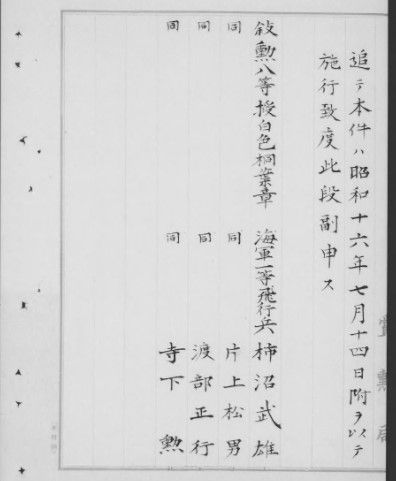 追テ本件ハ昭和十六年七月十四日附ヲ以テ
施行致度此段副申ス
叙勲八等授白色桐葉章 海軍一等飛行兵 柿沼武雄
同 同 片上松男
同 同 渡部正行
同 同 寺下勲
賞勲局